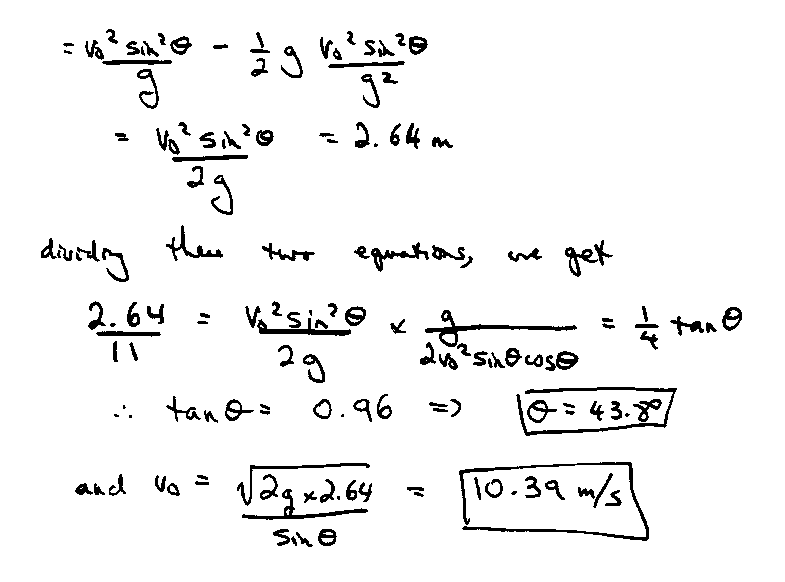 = v₀² sin²θ / g - 1/2 g v₀² sin²θ / g²
= v₀² sin²θ / 2g = 2.64 m
dividing these two equations, we get
2.64 / 11 = v₀² sin²θ / 2g × g / 2v₀² sinθ cosθ = 1/4 tan θ
∴ tan θ = 0.96 => θ = 43.8°
and v₀ = √2g × 2.64 / sin θ = 10.39 m/s